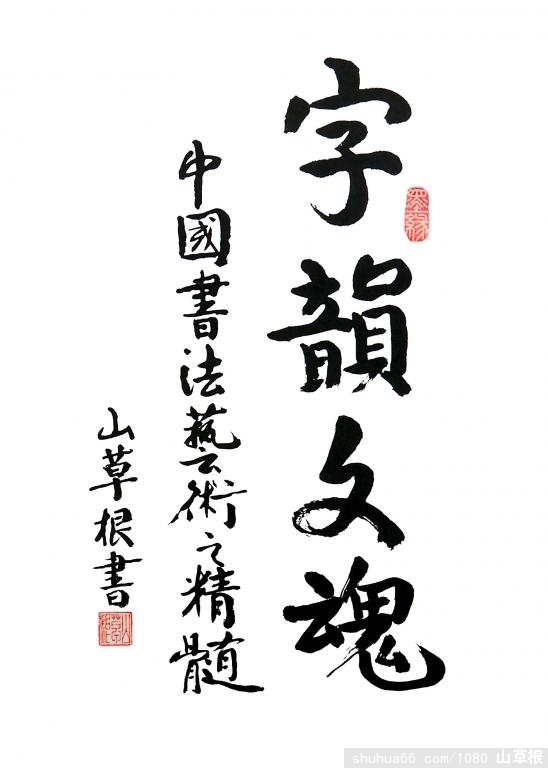 字韻文魂
墨缘
中國書法藝術之精髓
山草根書
山草根
shuhua66.com/1080 山草根